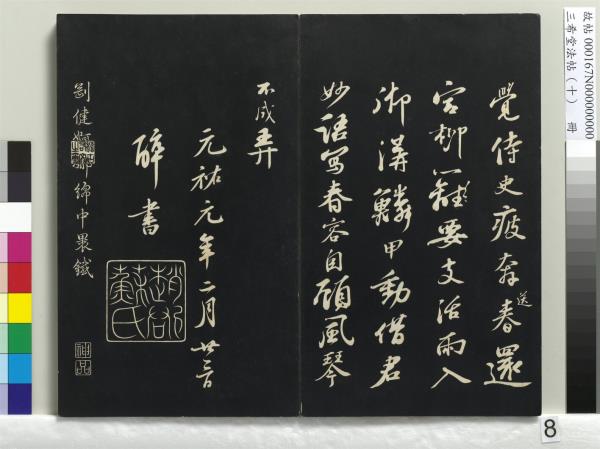 覺侍史疲奔送春還
宮柳要支活雨入
御溝鱗甲動借君
妙語寫春容自顧風琴
不成弄
元祐元年二月廿二日
醉書
趙郡蘇氏
剛健
綿中裹鐵
神品
故帖 000167N000000000
三希堂法帖(十) 冊
8